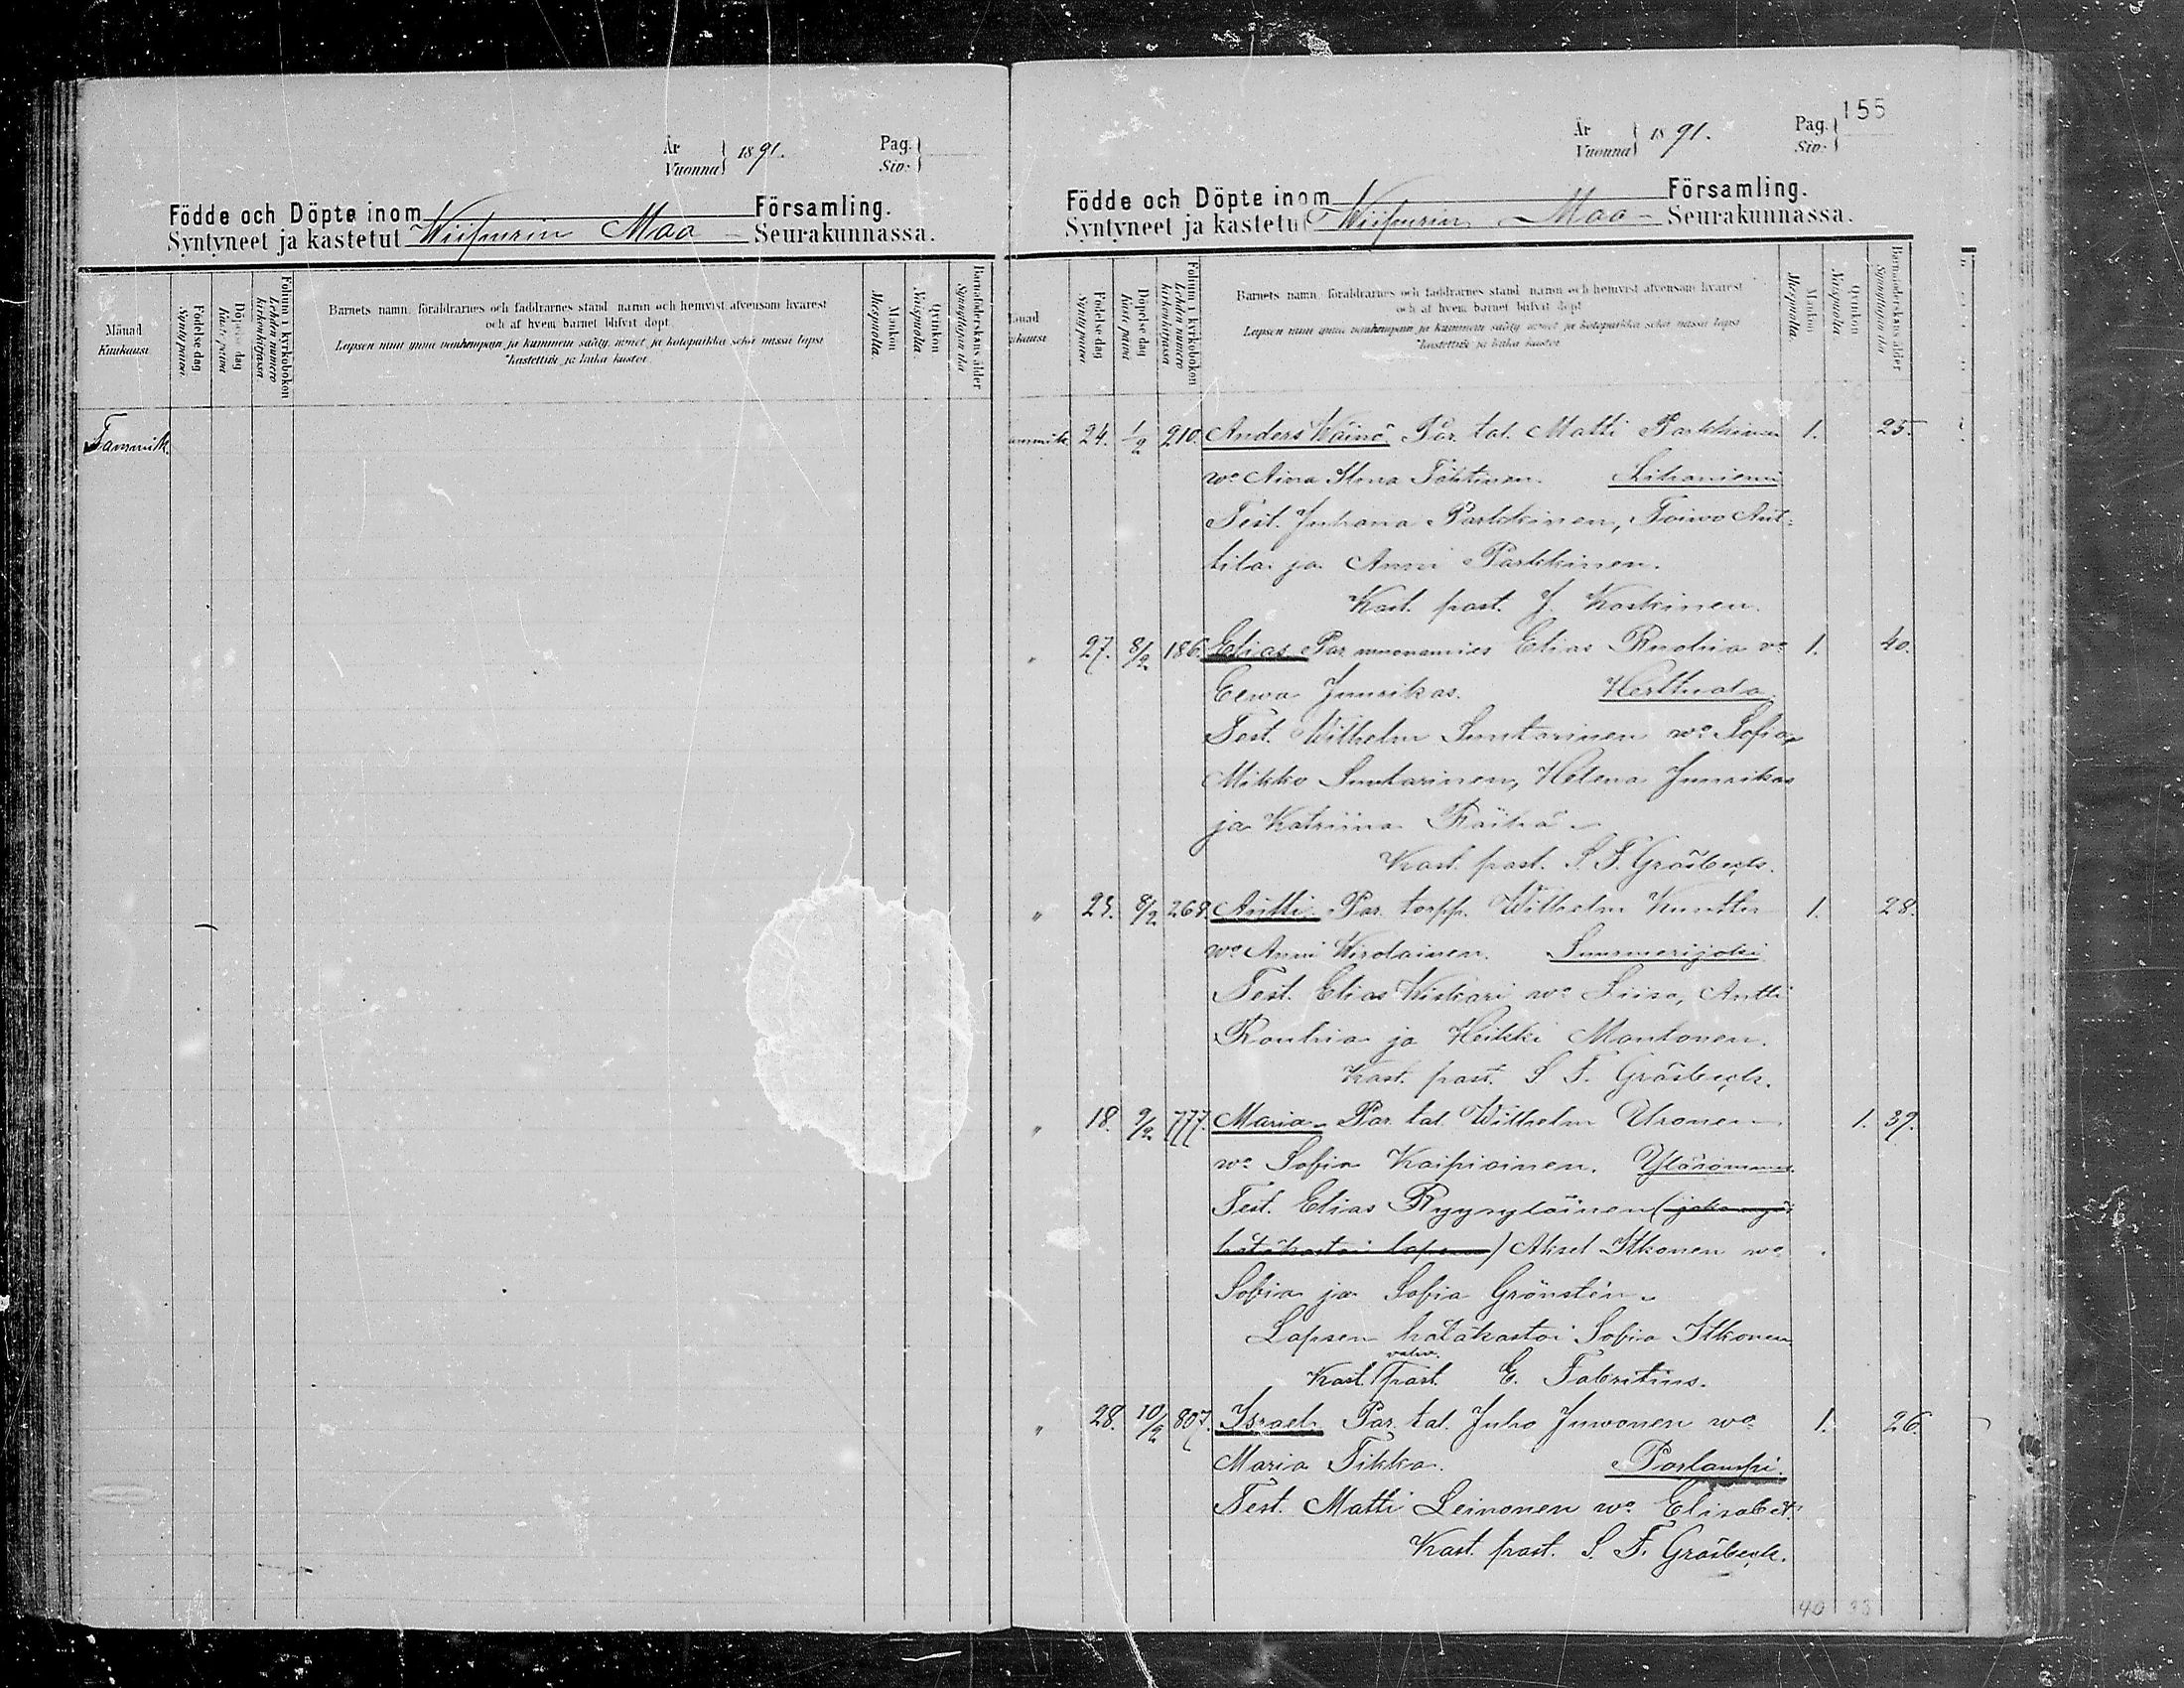 År
Vuonna } 1891.
Pag.
Siv. }
Födde och Döpte inom Församling.
Syntyneet ja kastetut Wiipurin Maa - Seurakunnassa.
Månad
Kuukausi
Födelse dag
Synty päivä
Döpelse dag
Kaste päivä
Folium i kyrkoboken
Lehden numero
kirkonkirjassa
Barnets namn, föräldrarnes och faddrarnes stånd, namn och hemvist äfvensom hvarest
och af hvem barnet blifvit döpt.
Lapsen nimi ynnä vanhempain ja kummein sääty, nimet ja kotopaikka sekä missä lapsi
kastettiin ja kuka kastoi.
Mankön
Miespuolta.
Qvinkön
Vaispuolta.
Barnaföderskans ålder
Synnyttäjän ikä
Tammik.
155
År
Vuonna } 1891.
Pag.
Siv. }
Födde och Döpte inom Församling.
Syntyneet ja kastetut Wiipurin Maa - Seurakunnassa.
Födelse dag
Synty päivä
Döpelse dag
Kaste päivä
Folium i kyrkoboken
Lehden numero
kirkonkirjassa
Barnets namn, föräldrarnes och faddrarnes stånd, namn och hemvist äfvensom hvarest
och af hvem barnet blifvit döpt.
Lapsen nimi ynnä vanhempain ja kummein sääty, nimet ja kotopaikka sekä missä lapsi
kastettiin ja kuka kastoi.
Mankön
Miespuolta.
Qvinkön
Vaispuolta.
Barnaföderskans ålder
Synnyttäjän ikä
ammik. 24. 1/2 210. Anders Wäinö. Par. tal. Matti Parkkinen 1. 25.
wo Aina Ilona Tähtinen. Lihaniemi
Test. Juhana Parkkinen, Toiwo Ant-
tila ja Anni Parkkinen.
Kast. past. J. Koskinen.
" 27. 8/2 186. Elias Par. muonamies Elias Ruohia wo 1. 40.
Eewa Juurikas. Herttuala.
Test. Wilhelm Suntarinen wo Sofia,
Mikko Suntarinen, Helena Juurikas
ja Katriina Räihä.
Kast. past. S. F. Gräsbeck.
" 25. 8/2 268. Antti Par. torpp. Wilhelm Kunttu 1. 28.
wo Anni Wirolainen. Suurmerijoki
Test. Elias Wiskari wo Liisa, Antti
Rouhia ja Heikki Montonen.
Kast. past. S. F. Gräsbeck.
" 18. 9/2 777. Maria Par. tal. Wilhelm Uronen 1. 39.
wo Sofia Kaipiainen. Yläsommee.
Test. Elias Ryynyläinen (joka myös
hätäkastoi lapsen) Aksel Itkonen wo
Sofia ja Sofia Grönstén.
Lapsen hätäkastoi Sofia Itkonen
vahv.
Kast. past. E. Fabritius.
" 28. 10/2 807. Israel. Par. tal. Juho Juwonen wo 1. 26.
Maria Tikka. Porlampi.
Test. Matti Leinonen wo Elisabet.
Kast. past. S. F. Gräsbeck.
40 33